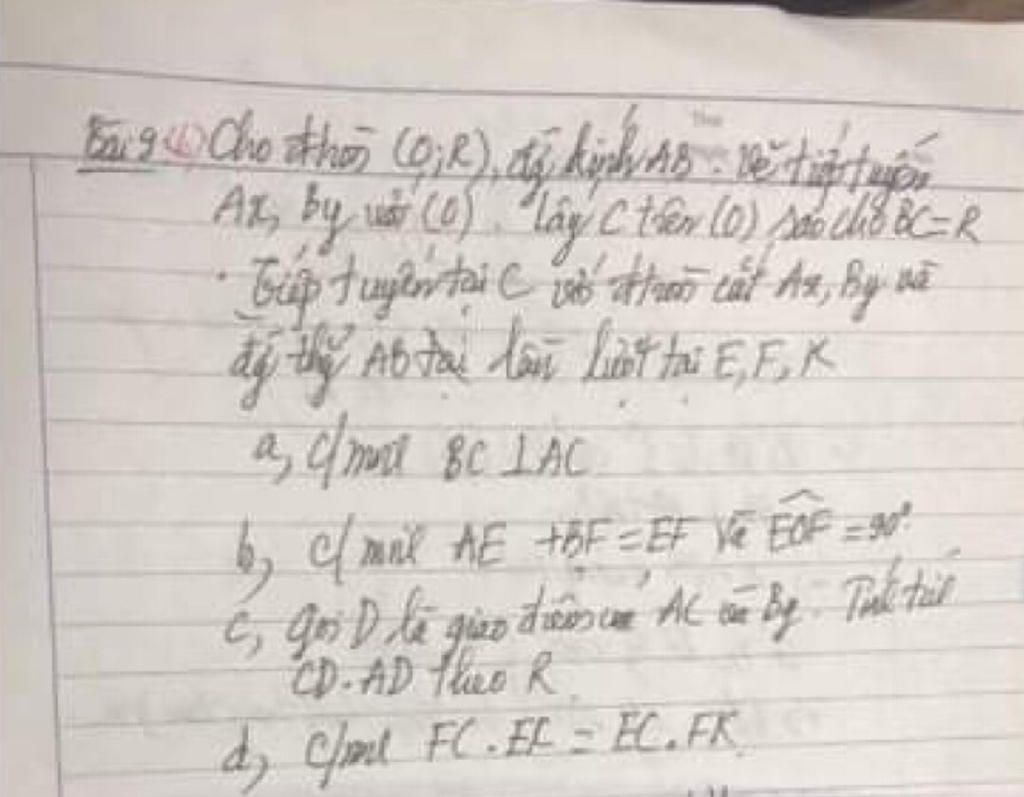 Bài 9 (6) Cho đtròn (O;R), đg kính AB. Vẽ tiếp tuyến
Ax, By với (O). Lấy C trên (O) sao cho BC = R
Tiếp tuyến tại C với đtròn cắt Ax, By và
đg thg AB tại lần lượt tại E, F, K
a, c/mnl BC ⊥ AC
b, c/mnl AE + BF = EF và EOF = 90°
c, gọi D là giao điểm của AC và By. Tính tích
CD.AD theo R
d, c/ml FC.EK = EC.FK